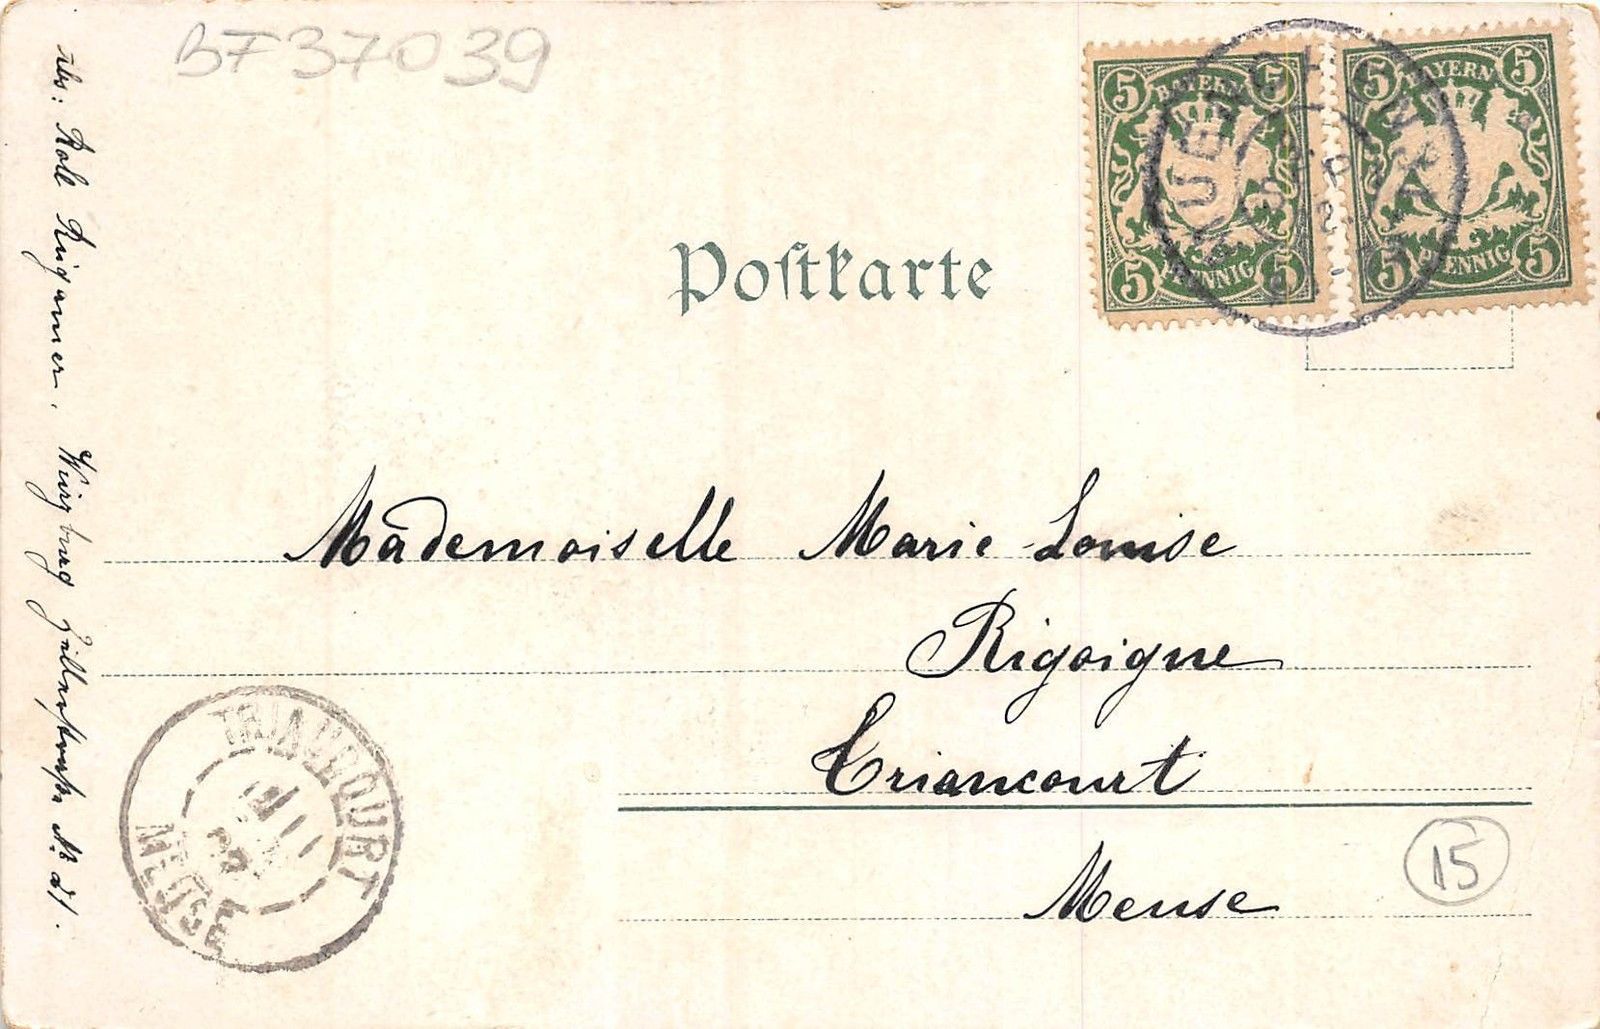 BF37039
5 BAYERN 5
5 PFENNIG 5
5 BAYERN 5
5 PFENNIG 5
MUENCHEN
Postkarte
Mademoiselle Marie-Louise
Rigoigne
Triancourt
Meuse
15
TRIAUCOURT
MEUSE
Abs: Würzburg No 21.